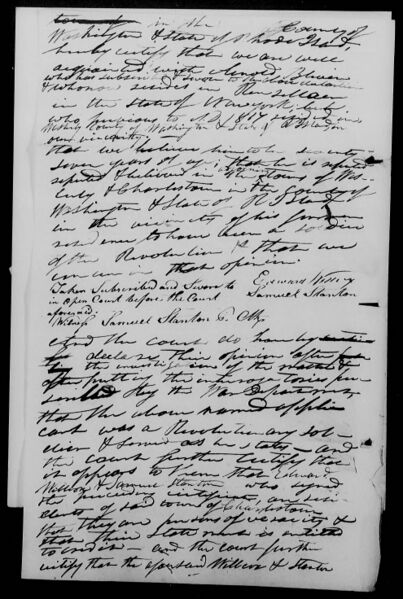 in the County of
Washington & State of Rhode Island,
hereby certify that we are well
acquainted with Arnold
who has subscribed & sworn to the
& who now resides in
in the State of New York, but
who previous to AD 1817 resided in
County of Washington & State of
own vicinity
that we believe him to be seventy-
seven years of age; that he is
reputed & believed in the towns of Wes-
terly & Charlestown in the County of
Washington & State of R. Island
in the vicinity of his former
residence to have been a soldier
of the Revolution & that we
concur in that opinion.
Taken Subscribed and Sworn to
in Open Court before the Court
Edward Wilcox
Samuel Stanton
aforesaid.
Witness Samuel Stanton
And the court do hereby
declare their opinion after
the investigation of the matter &
after putting the interrogatories pre-
scribed by the War Department
that the above named applic
cant was a Revolutionary sol-
dier & served as he states — and
the court further certify that
it appears to them that Edward
Wilcox & Samuel Stanton who signed
the preceding certificate, are resi-
dents of said town of Charlestown
that they are persons of veracity &
that their statement is entitled
to credit — and the court further
certify that the aforesaid Willcox & Stanton